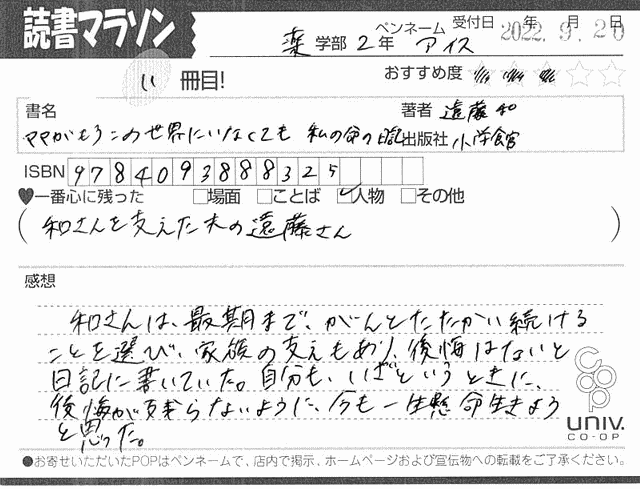 読書マラソン
薬 学部 2 年 ペンネーム アイス 受付日 2022年 9月 20日
11 冊目!
おすすめ度 ★★★☆☆
書名 ママがもうこの世界にいなくても 私の命の日記
著者 遠藤和
出版社 小学館
ISBN 9784093888325
♥一番心に残った □場面 □ことば ☑人物 □その他
(和さんを支えた夫の遠藤さん)
感想
和さんは、最期まで、がんとたたかい続ける
ことを選び、家族の支えもあり、後悔はないと
日記に書いていた。自分も、いざというときに、
後悔が残らないように、今も一生懸命生きよう
と思った。
coop
UNIV.
CO-OP
●お寄せいただいたPOPはペンネームで、店内で掲示、ホームページおよび宣伝物への転載をご了承ください。